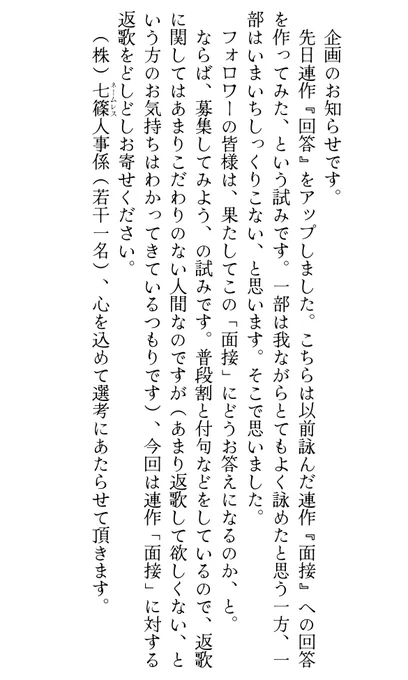 企画のお知らせです。
先日連作『回答』をアップしました。こちらは以前詠んだ連作『面接』への回答
を作ってみた、という試みです。一部は我ながらとてもよく詠めたと思う一方、一
部はいまいちしっくりこない、と思います。そこで思いました。
フォロワーの皆様は、果たしてこの「面接」にどうお答えになるのか、と。
ならば、募集してみよう、の試みです。普段割と付句などをしているので、返歌
に関してはあまりこだわりのない人間なのですが（あまり返歌して欲しくない、と
いう方のお気持ちはわかってきているつもりです）、今回は連作「面接」に対する
返歌をどしどしお寄せください。
（株）七篠人事係（若干一名）、心を込めて選考にあたらせて頂きます。
ネームレス